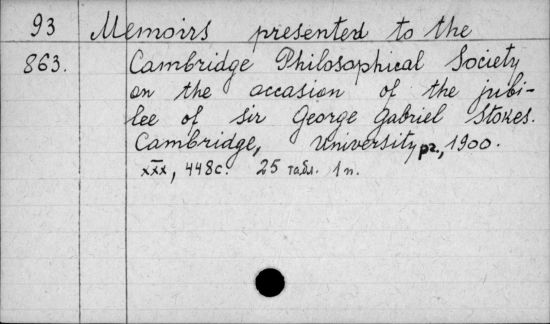 93 Memoirs presented to the
863. Cambridge Philosophical Society
on the occasion of the jubi-
lee of sir George Gabriel Stokes.
Cambridge, University pr., 1900.
xxx, 448с. 25 табл. 1 п.